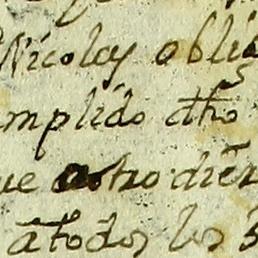 Nicolas obli
mplido dho
ue otro dier
a todos los